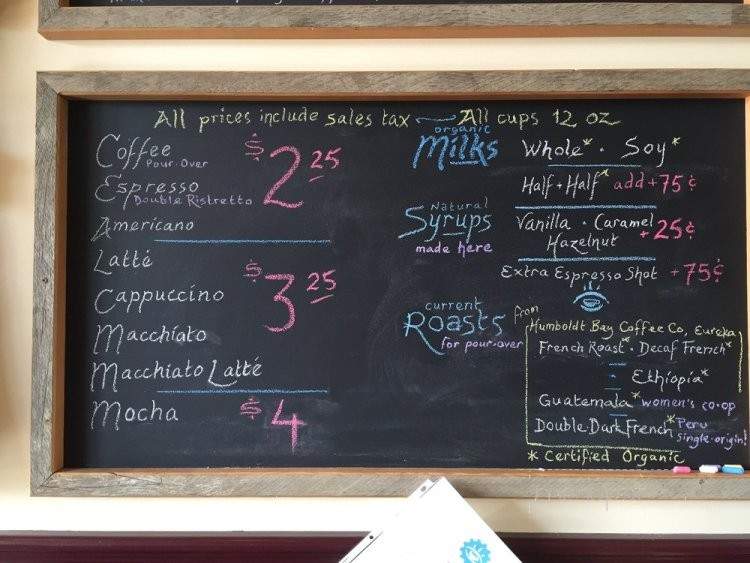 All prices include sales tax — All cups 12 oz
Coffee
Pour-Over
Espresso
Double Ristretto
Americano
$2 25
Latté
Cappuccino
Macchiato
Macchiato Latté
$3 25
Mocha
$4
organic
Milks
Whole* · Soy*
Half + Half* add + 75¢
Natural
Syrups
made here
Vanilla · Caramel
Hazelnut
+ 25¢
Extra Espresso Shot + 75¢
current
Roasts
for pour-over
from
Humboldt Bay Coffee Co, Eureka
French Roast* · Decaf French*
Ethiopia*
Guatemala* women's co-op
Double Dark French* Peru
single-origin!
* Certified Organic